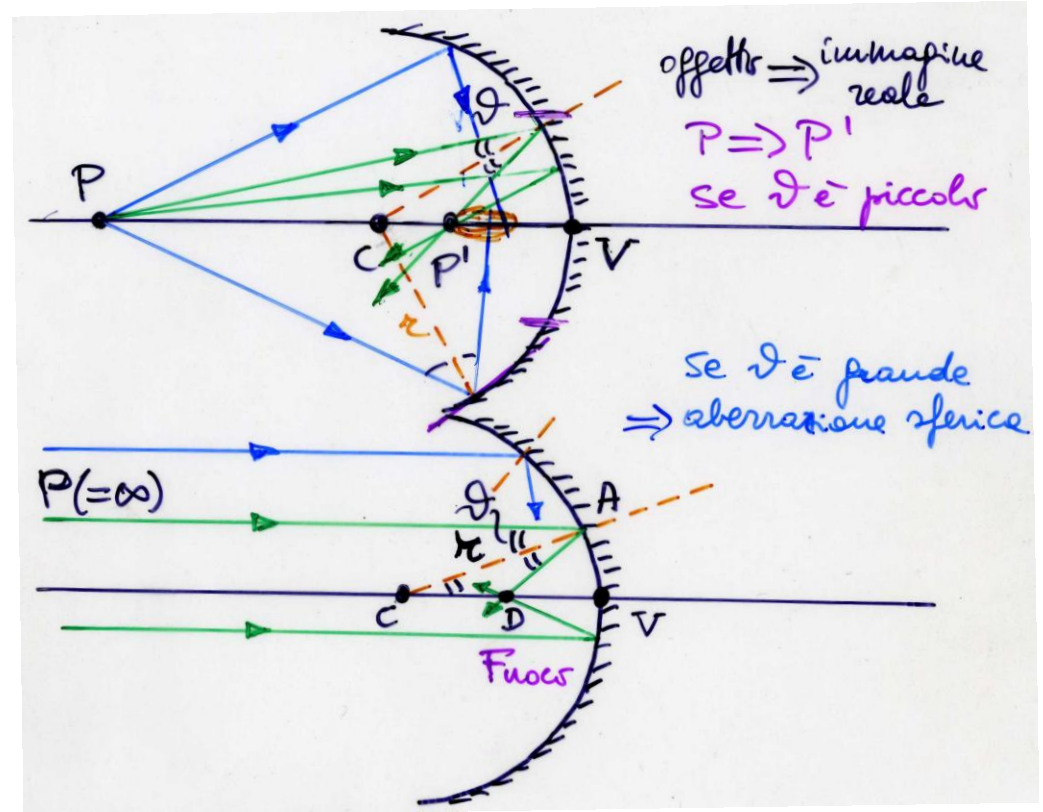 oggetto ⇒ immagine
reale
P ⇒ P'
se ϑ è piccolo
ϑ
P
C
P'
V
r
se ϑ è grande
⇒ aberrazione sferica
P(=∞)
ϑ
A
r
C
D
V
Fuoco